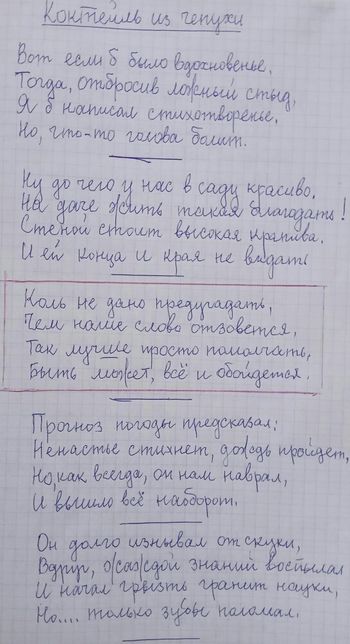 Коктейль из чепухи
Вот если б было вдохновенье,
Тогда, отбросив ложный стыд,
Я б написал стихотворенье.
Но, что-то голова болит.
Ну до чего у нас в саду красиво.
На даче жить такая благодать!
Стеной стоит высокая крапива.
И ей конца и края не видать
Коль не дано предугадать,
Чем наше слово отзовется,
Так лучше просто помолчать,
Быть может, всё и обойдется.
Прогноз погоды предсказал:
Ненастье стихнет, дождь пройдет,
Но, как всегда, он нам наврал,
И вышло всё наоборот.
Он долго изнывал от скуки,
Вдруг, жаждой знаний воспылал
И начал грызть гранит науки,
Но.... только зубы поломал.